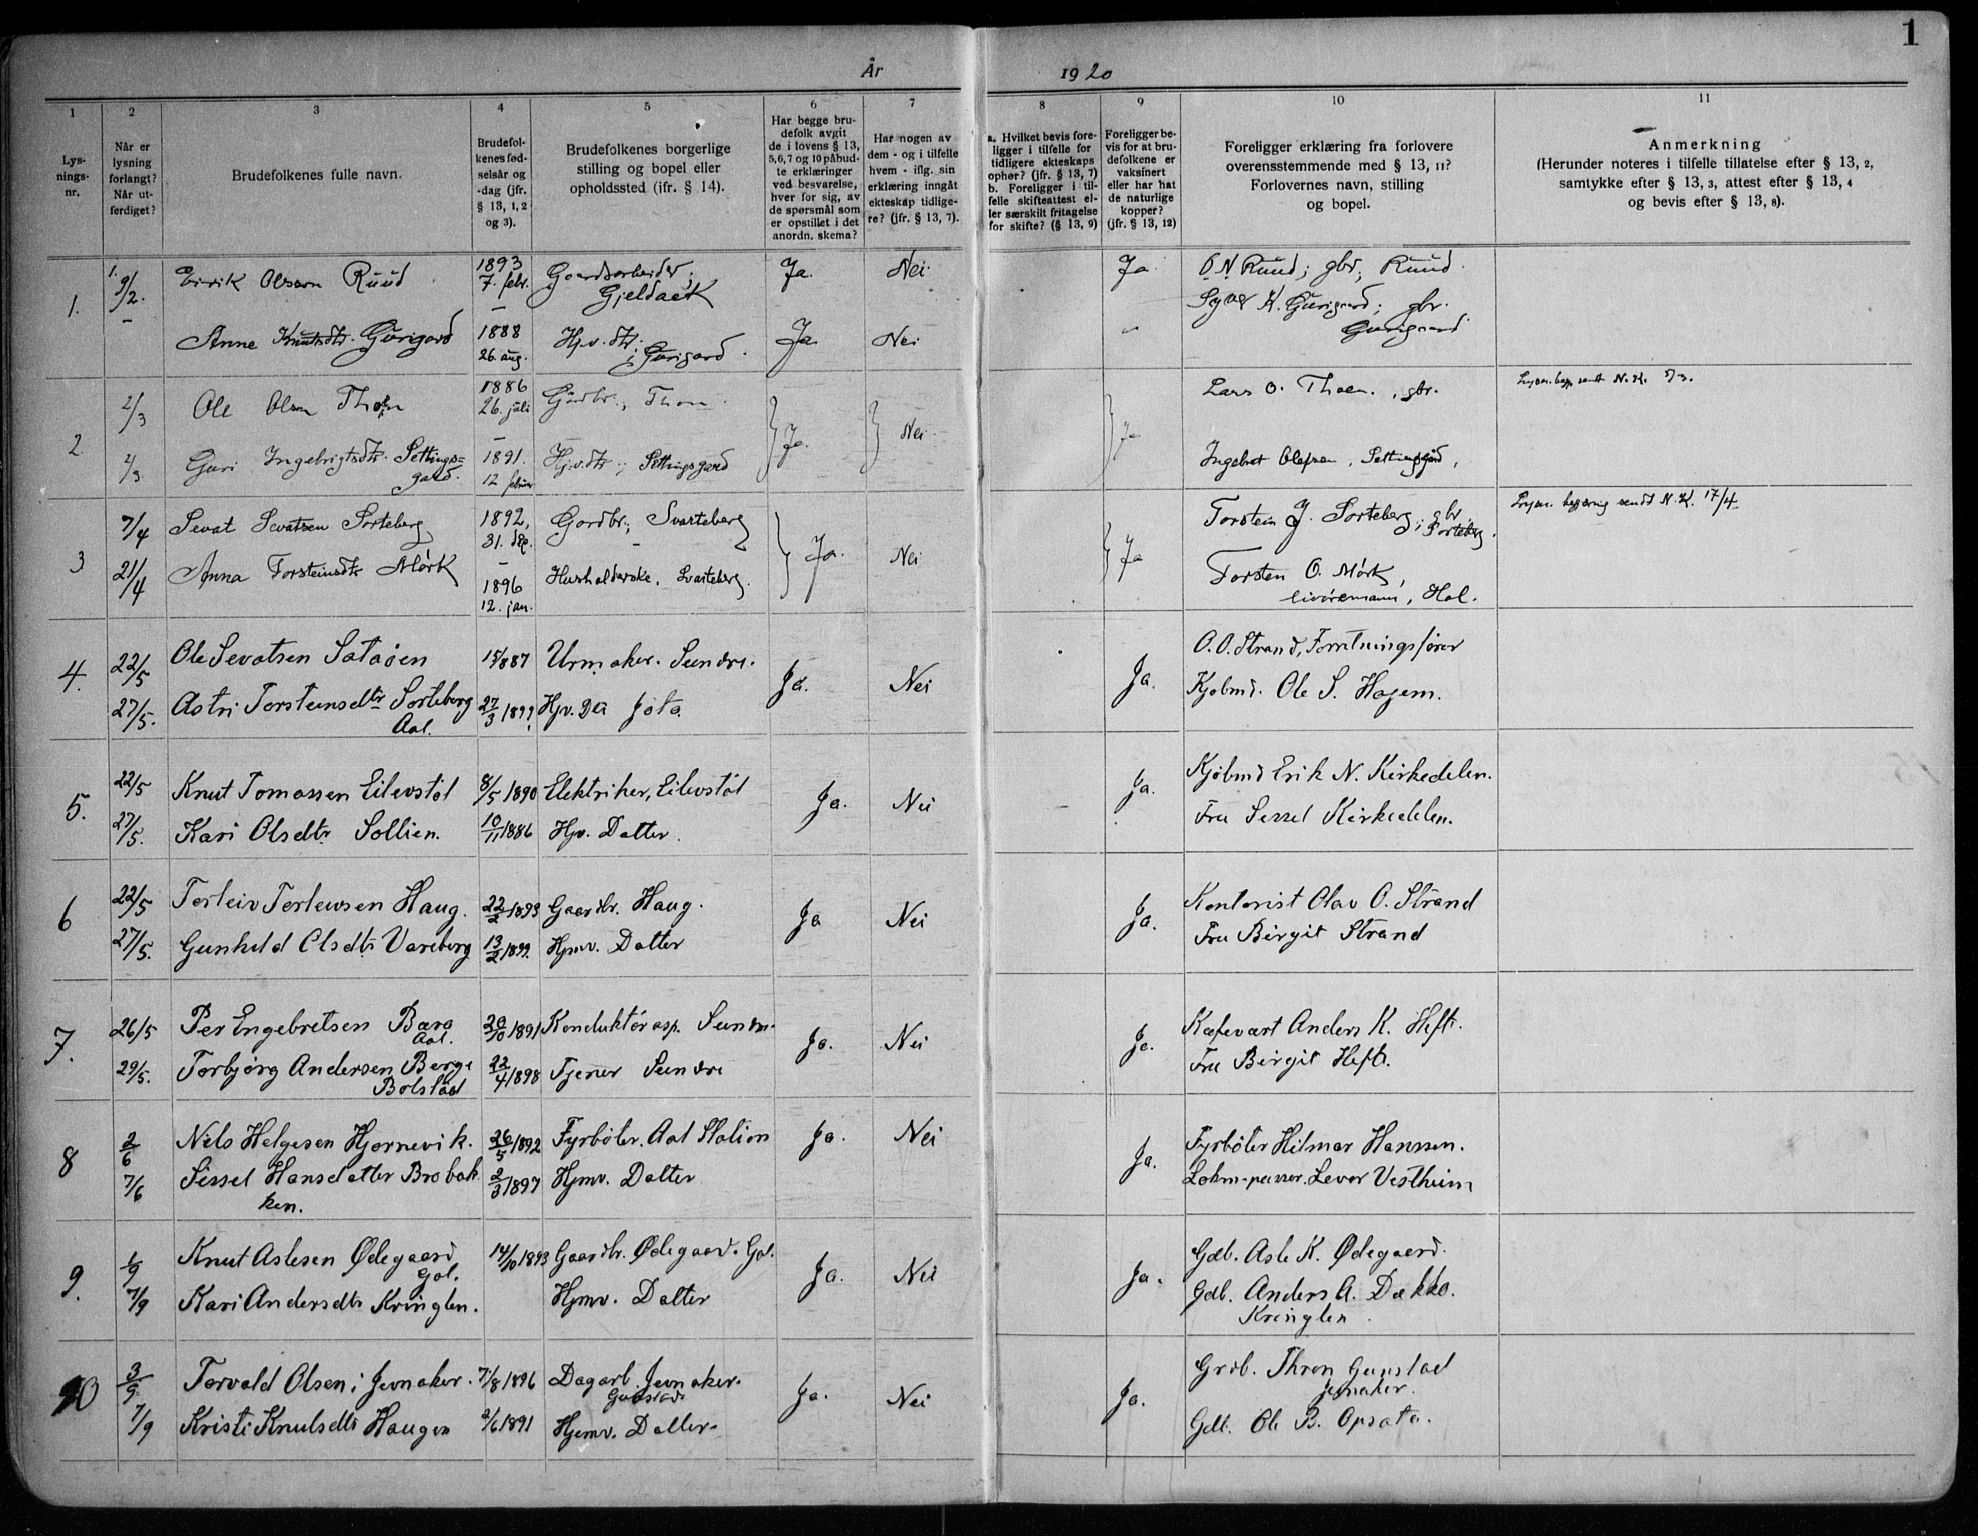 1
År 1920
1
2
3
4
5
6
7
8
9
10
11
Lys-
nings-
nr.
Når er
lysning
forlangt?
Når ut-
ferdiget?
Brudefolkenes fulle navn.
Brudefol-
kenes fød-
selsår og
-dag (jfr.
§ 13, 1, 2
og 3).
Brudefolkenes borgerlige
stilling og bopel eller
opholdssted (ifr. § 14).
Har begge bru-
defolk avgit
de i lovens § 13,
5,6,7 og 10 påbud-
te erklæringer
ved besvarelse,
hver for sig, av
de spørsmål som
er opstillet i det
anordn. skema?
Har nogen av
dem - og i tilfelle
hvem - iflg. sin
erklæring inngått
ekteskap tidlige-
re? (jfr. § 13, 7).
a. Hvilket bevis fore-
ligger i tilfelle for
tidligere ekteskaps
ophør? (jfr. § 13, 7)
b. Foreligger i til-
felle skifteattest el-
ler særskilt fritagelse
for skifte? (§ 13, 9)
Foreligger be-
vis for at bru-
defolkene er
vaksinert
eller har hat
de naturlige
kopper?
(jfr. § 13, 12)
Foreligger erklæring fra forlovere
overensstemmende med § 13, 11?
Forlovernes navn, stilling
og bopel.
Anmerkning
(Herunder noteres i tilfelle tillatelse efter § 13, 2,
samtykke efter § 13, 3, attest efter § 13, 4
og bevis efter § 13, 8).
1. 9/2. Eirik Olsson Ruud 1893 7. febr. Gaardsarbeider; Gjeldaek Ja. Nei. Ja. O. N. Ruud; gbr; Ruud.
Syver K. Gurigaard; gbr.
Anne Knutsdtr. Gurigard 1888 26. aug. Hjv. dtr; Gurigard. Ja. Nei Gurigaard
2 2/3 Ole Olsen Thon 1886 26. juli Gardbr., Thon. Ja. Nei. Ja Lars O. Thoen, gbr. 5/3.
2/3 Guri Ingebrigtsdtr. Settings=
gard. 1891. 12 februar Hjv.dtr.; Settingsgard Ingebret Olefsen, Settingsgård,
3 7/4 Sevat Sevatsen Sorteberg 1892, 31. Gardbr; Svarteberg Ja. Nei Ja Torstein J. Sorteberg; gbr. Sorteberg. Lysn. begjæring sendt N. K. 17/4
21/4 Anna Torsteinsdtr Mørk 1896 12. jan. Husholderske, Svarteberg. Torsten O. Mørk,
Hol.
4. 22/5 Ole Sevatsen Sataøen 15/887 Urmaker. Sundre. Ja. Nei Ja. O. O. Strand, Forretningsfører
27/5. Astri Torsteinsdtr Sorteberg
Aal. 27/3 1899 Hjv. Da Kjøbmd. Ole S. Hagem.
5. 22/5 Knut Tomassen Eilevstøl 8/5 1890 Elektriker, Eilevstøl Ja. Nei Ja. Kjøbmd Erik N. Kirkedelen.
27/5. Kari Olsdtr Sollien. 10/11 1886 Hjv. Datter. Fru Sissel Kirkedelen.
6 22/5 Torleiv Torleivsen Haug. 22/2 1893 Gaardbr. Haug. Ja Nei Ja. Kontorist Olav O. Strand
27/5. Gunhild Olsdtr Vareberg 13/2 1899. Hjmv. Datter Fru Birgit Strand
7. 26/5 Per Engebretsen Bæra
Aal. 20/10 1891 Konduktørasp. Sundre. Ja. Nei Ja. Kafevært Anders K. Heft.
29/5. Torbjørg Andersen Berge
Bolstad 22/4 1898 Tjener Sundre Fru Birgit Heft.
8 2/6 Nils Helgesen Hjørnevik. 26/5 1892 Fyrbøter. Aal Station Ja. Nei Ja. Fyrbøter Hilmar Hanssen.
7/6 Sissel Hansdatter Brobak
ken. 2/3 1897 Hjmv. Datter Lokm-pusser. Levor Vestheim
9. 1/9 Knut Aslesen Ødegaard
Gol. 14/10 1893 Gaardbr. Ødegaard. Gol. Ja. Nei Ja. Gdb. Asle K. Ødegaard.
7/9 Kari Andersdtr Kringlen. Hjmv. Datter Gdb. Anders A. Dækko.
Kringlen.
10 3/9. Torvald Olsen i Jevnaker. 7/8 1896 Dagarb. Jevnaker. Gunstad Ja. Nei Ja. Grdb. Thron Gunstad
Jevnaker.
7/9 Kristi Knutsdtr Haugen 2/6 1891 Hjemv. Datter. Gdb. Ole B. Opsata.